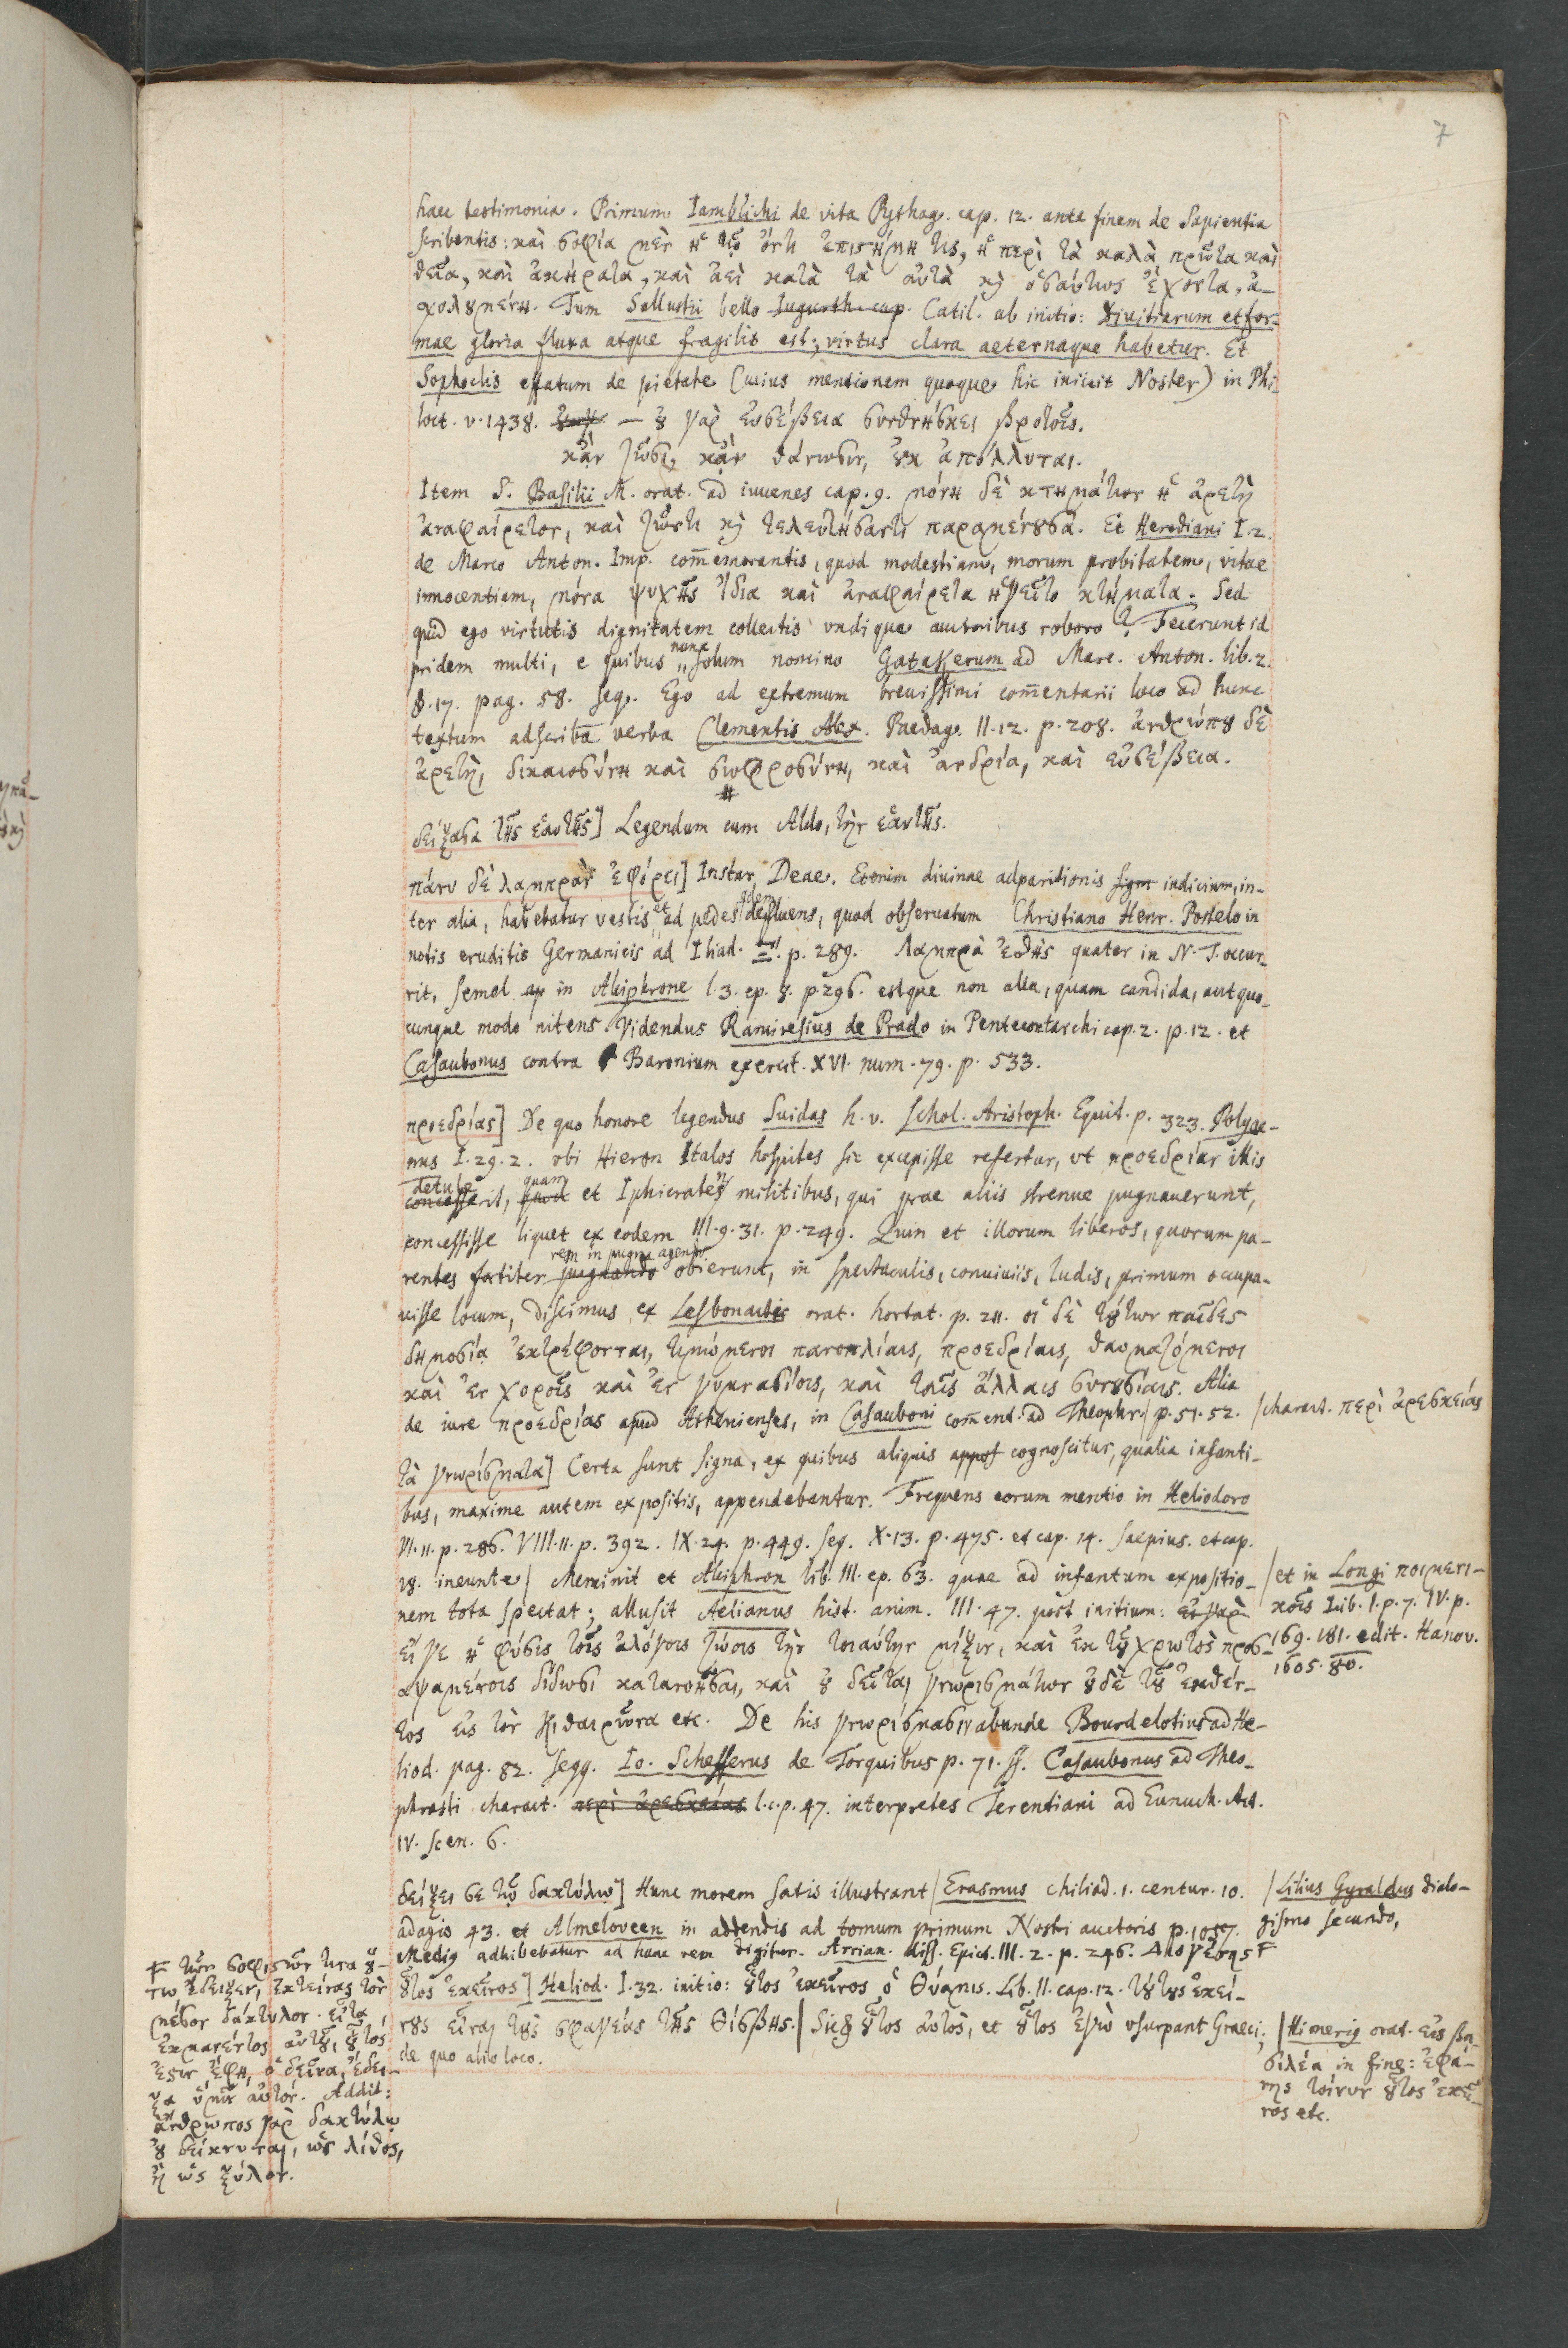 7
haec testimonia. Primum Iamblichi de vita Pythag. cap. 12. ante finem de Sapientia
scribentis: καὶ σοφία μὲν ἡ τῷ ὄντι ἐπιστήμη τις, ἡ περὶ τὰ καλὰ πρῶτα καὶ
θεῖα, καὶ ἀκήρατα, καὶ ἀεὶ κατὰ τὰ αὐτὰ κỳ ὁσαύτως ἔχοντα, ἀ-
σχολȣμένη. Tum Sallustii bello Iugurth. cap. Catil. ab initio: Divitiarum et for-
mae gloria fluxa atque fragilis est; virtus clara aeternaque habetur. Et
Sophoclis effatum de pietate (cuius mentionem quoque hic iniicit Noster) in Phi-
loct. v. 1438. — ȣ γὰρ εὐσέβεια συνθνήσκει βροτοῖς.
κἂν ζῶσι, κἂν θάνωσιν, ȣκ ἀπόλλυται.
Item S. Basilii M. orat. ad iuuenes cap. 9. μόνη δὲ κτημάτων ἡ ἀρετὴ
ἀναφαίρετον, καὶ ζῶντι κỳ τελευτήσαντι παραμένȣσα. Et Herodiani I. 2.
de Marco Anton. Imp. com̄emorantis, quod modestiam, morum probitatem, vitae
innocentiam, μόνα ψυχῆς ἴδια καὶ ἀναφαίρετα ἡγεῖτο κτήματα. Sed
quid ego virtutis dignitatem collectis vndique auctoribus roboro? Fecerunt id
pridem multi, e quibus nunc solum nomino Gatakerum ad Marc. Anton. lib. 2.
§. 17. pag. 58. seq. Ego ad extremum breuissimi com̄entarii loco ad hunc
textum adscribā verba Clementis Alex. Paedag. II. 12. p. 208. ἀνθρώπȣ δὲ
ἀρετὴ, δικαιοσύνη καὶ σωφροσύνη, καὶ ἀνδρία, καὶ εὐσέβεια.
#
δείξασα τῆς ἑαυτῆς] Legendum cum Aldo, τὴν ἑαυτῆς.
πάνυ δὲ λαμπρὰν ἐφόρει] Instar Deae. Etenim diuinae adparitionis sign indicium, in-
ter alia, habebatur vestis et ad pedes defluens, quod obseruatum Christiano Henr. Postelo in
notis eruditis Germanicis ad Iliad. Ξ. p. 289. Λαμπρὰ ἐσθὴς quater in N. T. occur-
rit, semel ap in Alciphrone l. 3. ep. 8. p. 296. estque non alia, quam candida, aut quo-
cunque modo nitens. Videndus Ramiresius de Prado in Pentecontarchi cap. 2. p. 12. et
Casaubonus contra Baronium exercit. XVI. num. 79. p. 533.
προεδρίας] De quo honore legendus Suidas h. v. Schol. Aristoph. Equit. p. 323. Polyae-
nus I. 29. 2. vbi Hieron Italos hospites sic excepisse refertur, vt προεδρίαν illis
detule
concesserit, quam quod et Iphicraten militibus, qui prae aliis strenue pugnauerunt,
concessisse liquet ex eodem III. 9. 31. p. 249. Quin et illorum liberos, quorum pa-
rem in pugna agendo
rentes fortiter pugnando obierunt, in spectaculis, conuiuiis, ludis, primum occupa-
uisse locum, discimus ex Lesbonactis orat. hortat. p. 211. οἱ δὲ τȣτων παῖδες
δημοσίᾳ ἐκτρέφονται, τιμώμενοι πανοπλίαις, προεδρίαις, θαυμαζόμενοι
καὶ ἐν χοροῖς καὶ ἐν γυμνασίοις, καὶ ταῖς ἄλλαις συνȣσίαις. Alia
de iure προεδρίας apud Athenienses, in Casauboni com̄ent. ad Theophr./ p. 51. 52. /charact. περὶ ἀρεσκείας
τὰ γνωρίσματα] Certa sunt signa, ex quibus aliquis appos cognoscitur, qualia infanti-
bus, maxime autem expositis, appendebantur. Frequens eorum mentio in Heliodoro
VI. 11. p. 286. VIII. 11. p. 392. IX. 24. p. 449. seq. X. 13. p. 475. et cap. 14. saepius. et cap.
18. ineunte/ Meminit et Alciphron lib. III. ep. 63. quae ad infantum expositio-
nem tota spectat; allusit Aelianus hist. anim. III. 47. post initium: εἰ γὰρ
εἴ γε ἡ φύσις τοῖς ἀλόγοις ζώοις τὴν τοιαύτην μίξιν, καὶ ἐκ τȣ χρωτὸς προσ-
αψαμένοις δίδωσι κατανοῆσαι, καὶ ȣ δεῖται γνωρισμάτων ȣδὲ τȣ ἐκθέν-
τος εἰς τὸν Κιθαιρῶνα etc. De his γνωρίσμασιν abunde Bourdelotius ad He-
liod. pag. 82. seqq. Io. Schefferus de Torquibus p. 71. ss. Casaubonus ad Theo-
phrasti charact. περὶ ἀρεσκείας l. c. p. 47. interpretes Terentiani ad Eunuch. Act.
IV. Scen. 6.
/et in Longi ποιμενι-
κοῖς Lib. I. p. 7. IV. p.
169. 181. edit. Hanov.
1605. 8o.
δείξει σε τῷ δακτύλῳ] Hunc morem satis illustrant/ Erasmus chiliad. 1. centur. 10.
adagio 43. et Almeloveen in addendis ad tomum primum Nostri auctoris p. 1057.
Medius adhibebatur ad hanc rem digitus. Arrian. diss. Epict. III. 2. p. 246. Διογένης F
/Lilius Gyraldus dialo-
gismo secundo,
ȣτος ἐκεῖνος] Heliod. I. 32. initio: ȣτος ἐκεῖνος ὁ Θύαμις. Lib. II. cap. 12. τȣτȣς ἐκεί-
νȣς εἶναι τȣς σφαγέας τῆς Θίσβης./ Sic ȣτος αὐτὸς, et ȣτος ἐγὼ vsurpant Graeci,
de quo alio loco.
/Himerius orat. εἰς βα-
σιλέα in fine: ἐφά-
νης τοίνυν ȣτος ἐκεῖ-
νος etc.
F τῶν σοφιστῶν τινα ȣ-
τω ἔδειξεν, ἐκτείνας τὸν
μέσον δάκτυλον. εἶτα
ἐκμανέντος αὐτȣ, ȣτός
ἐστιν, ἔφη, ὁ δεῖνα, ἔδει-
ξα ὑμῖν αὐτόν. Addit:
ἄνθρωπος γὰρ δακτύλῳ
ȣ δείκνυται, ὡς λίθος,
ἢ ὡς ξύλον.